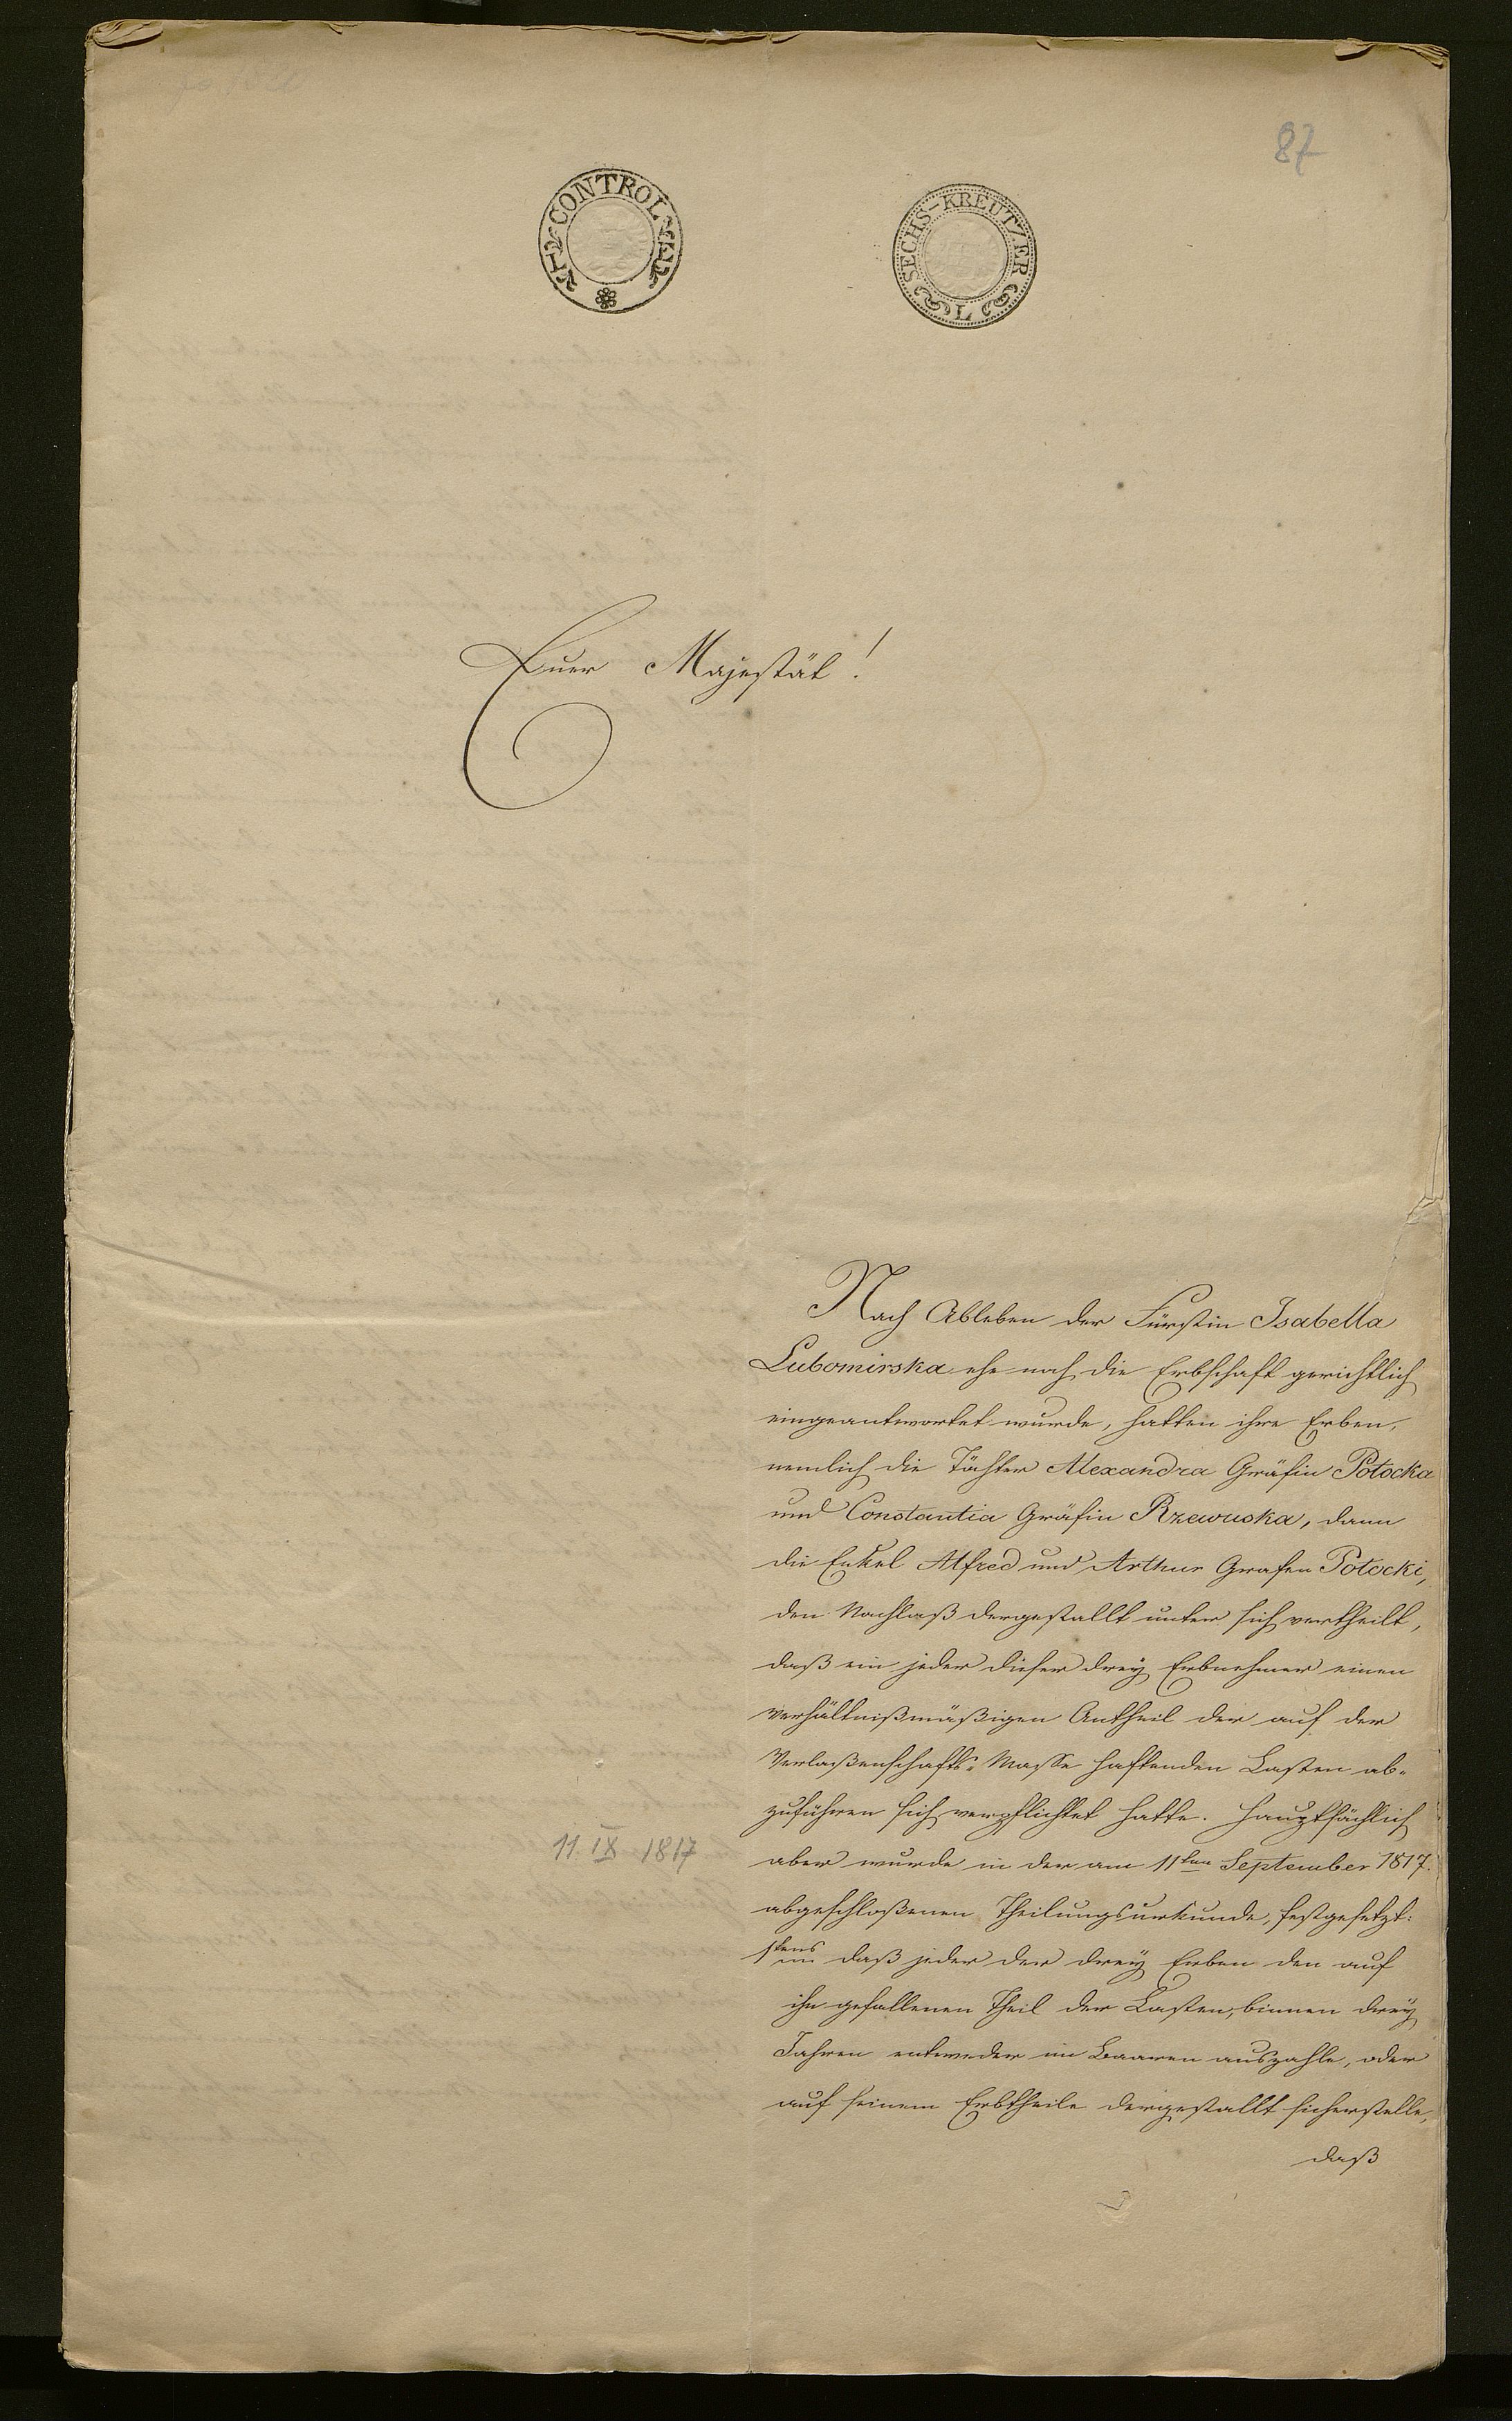 87
CONTROL
SECHS-KREUTZER
L
Euer Majestät!
Nach Ableben der Fürstin Isabella
Lubomirska ehe noch die Erbschaft gerichtlich
eingeantwortet wurde, hatten ihre Erben,
nemlich die Töchter Alexandra Gräfin Potocka
und Constantia Gräfin Rzewuska, dann
die Enkel Alfred und Arthur Grafen Potocki,
den Nachlaß dergestallt unter sich vertheilt,
daß ein jeder dieser drey Erbnehmer einen
verhältnißmäßigen Antheil der auf der
Verlaßenschafts-Masse haftenden Lasten ab-
zuführen sich verpflichtet hatte. Hauptsächlich
11. IX 1817
aber wurde in der am 11ten September 1817.
abgeschloßenen Theilungsurkunde, festgesetzt:
1tens daß jeder der drey Erben den auf
ihn gefallenen Theil der Lasten, binnen drey
Jahren entweder im Baaren auszahle, oder
auf seinem Erbtheile dergestallt sicherstelle,
daß